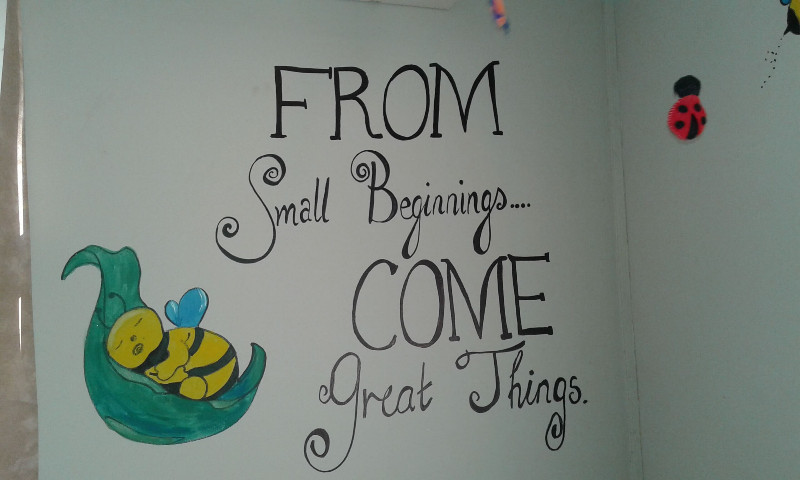 FROM
Small Beginnings....
COME
Great Things.